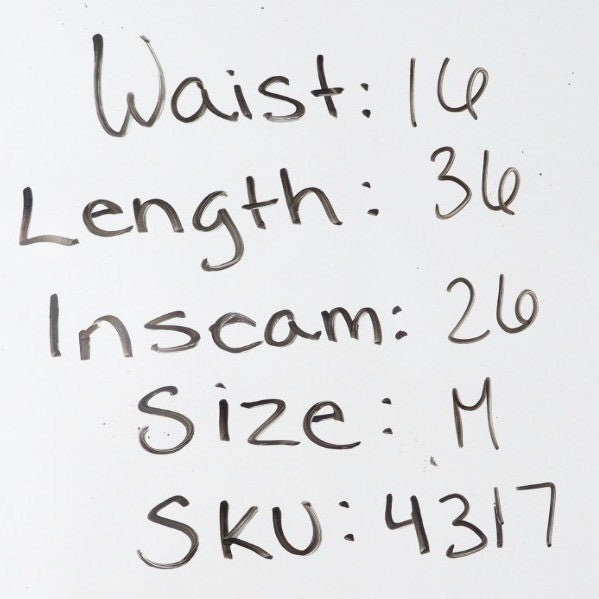 Waist: 16
Length: 36
Inseam: 26
Size: M
SKU: 4317